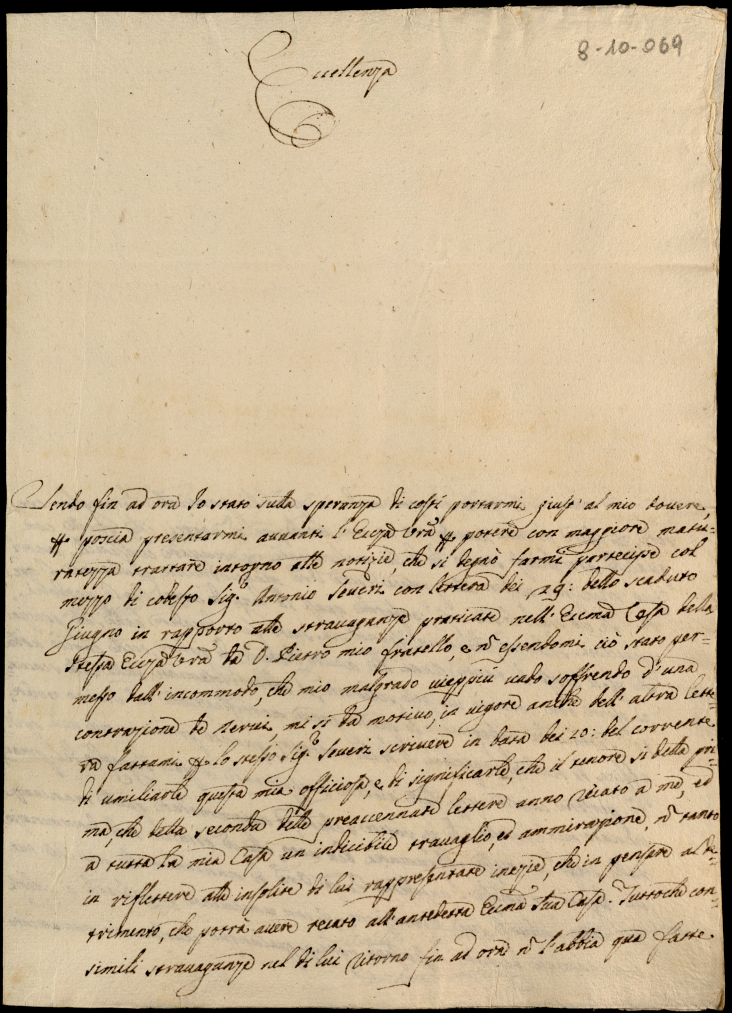 8-10-069
Eccellenza
Sendo fin ad ora Io stato sulla speranza di costì portarmi giust' al mio dovere,
p poscia presentarmi avvanti l'Eccza Vra p potere con maggiore matu-
ratezza trattare intorno alle notizie, che si degnò farmi partecipe col
mezzo di cotesto Sigr Antonio Severi con lettera dei 29: dello scaduto
Giugno in rapporto alle stravaganze praticate nell' Eccma Casa della
stessa Eccza Vra da D. Pietro mio fratello, e ñ essendomi ciò stato per-
messo dall' incommodo, che mio malgrado vieppiù vado soffrendo d'una
contrazione de nervi, mi si da motivo, in vigore anche dell' altra lette-
ra fattami p lo stesso Sigr Severi scrivere in data dei 20: del corrente
di umiliarle questa mia officiosa, e di significarle, che il tenore si della pri-
ma, che della seconda delle preaccennate lettere anno recato a me, ed
a tutta la mia Casa un indicibile travaglio, ed ammirazione, ñ tanto
in riflettere alle insolite di lui rappresentate inezie, che in pensare al de-
trimento, che potrà avere recato all'antedetta Eccma Sua Casa. Tuttoche con-
simili stravaganze nel di lui ritorno fin ad ora ñ l'abbia qua fatte